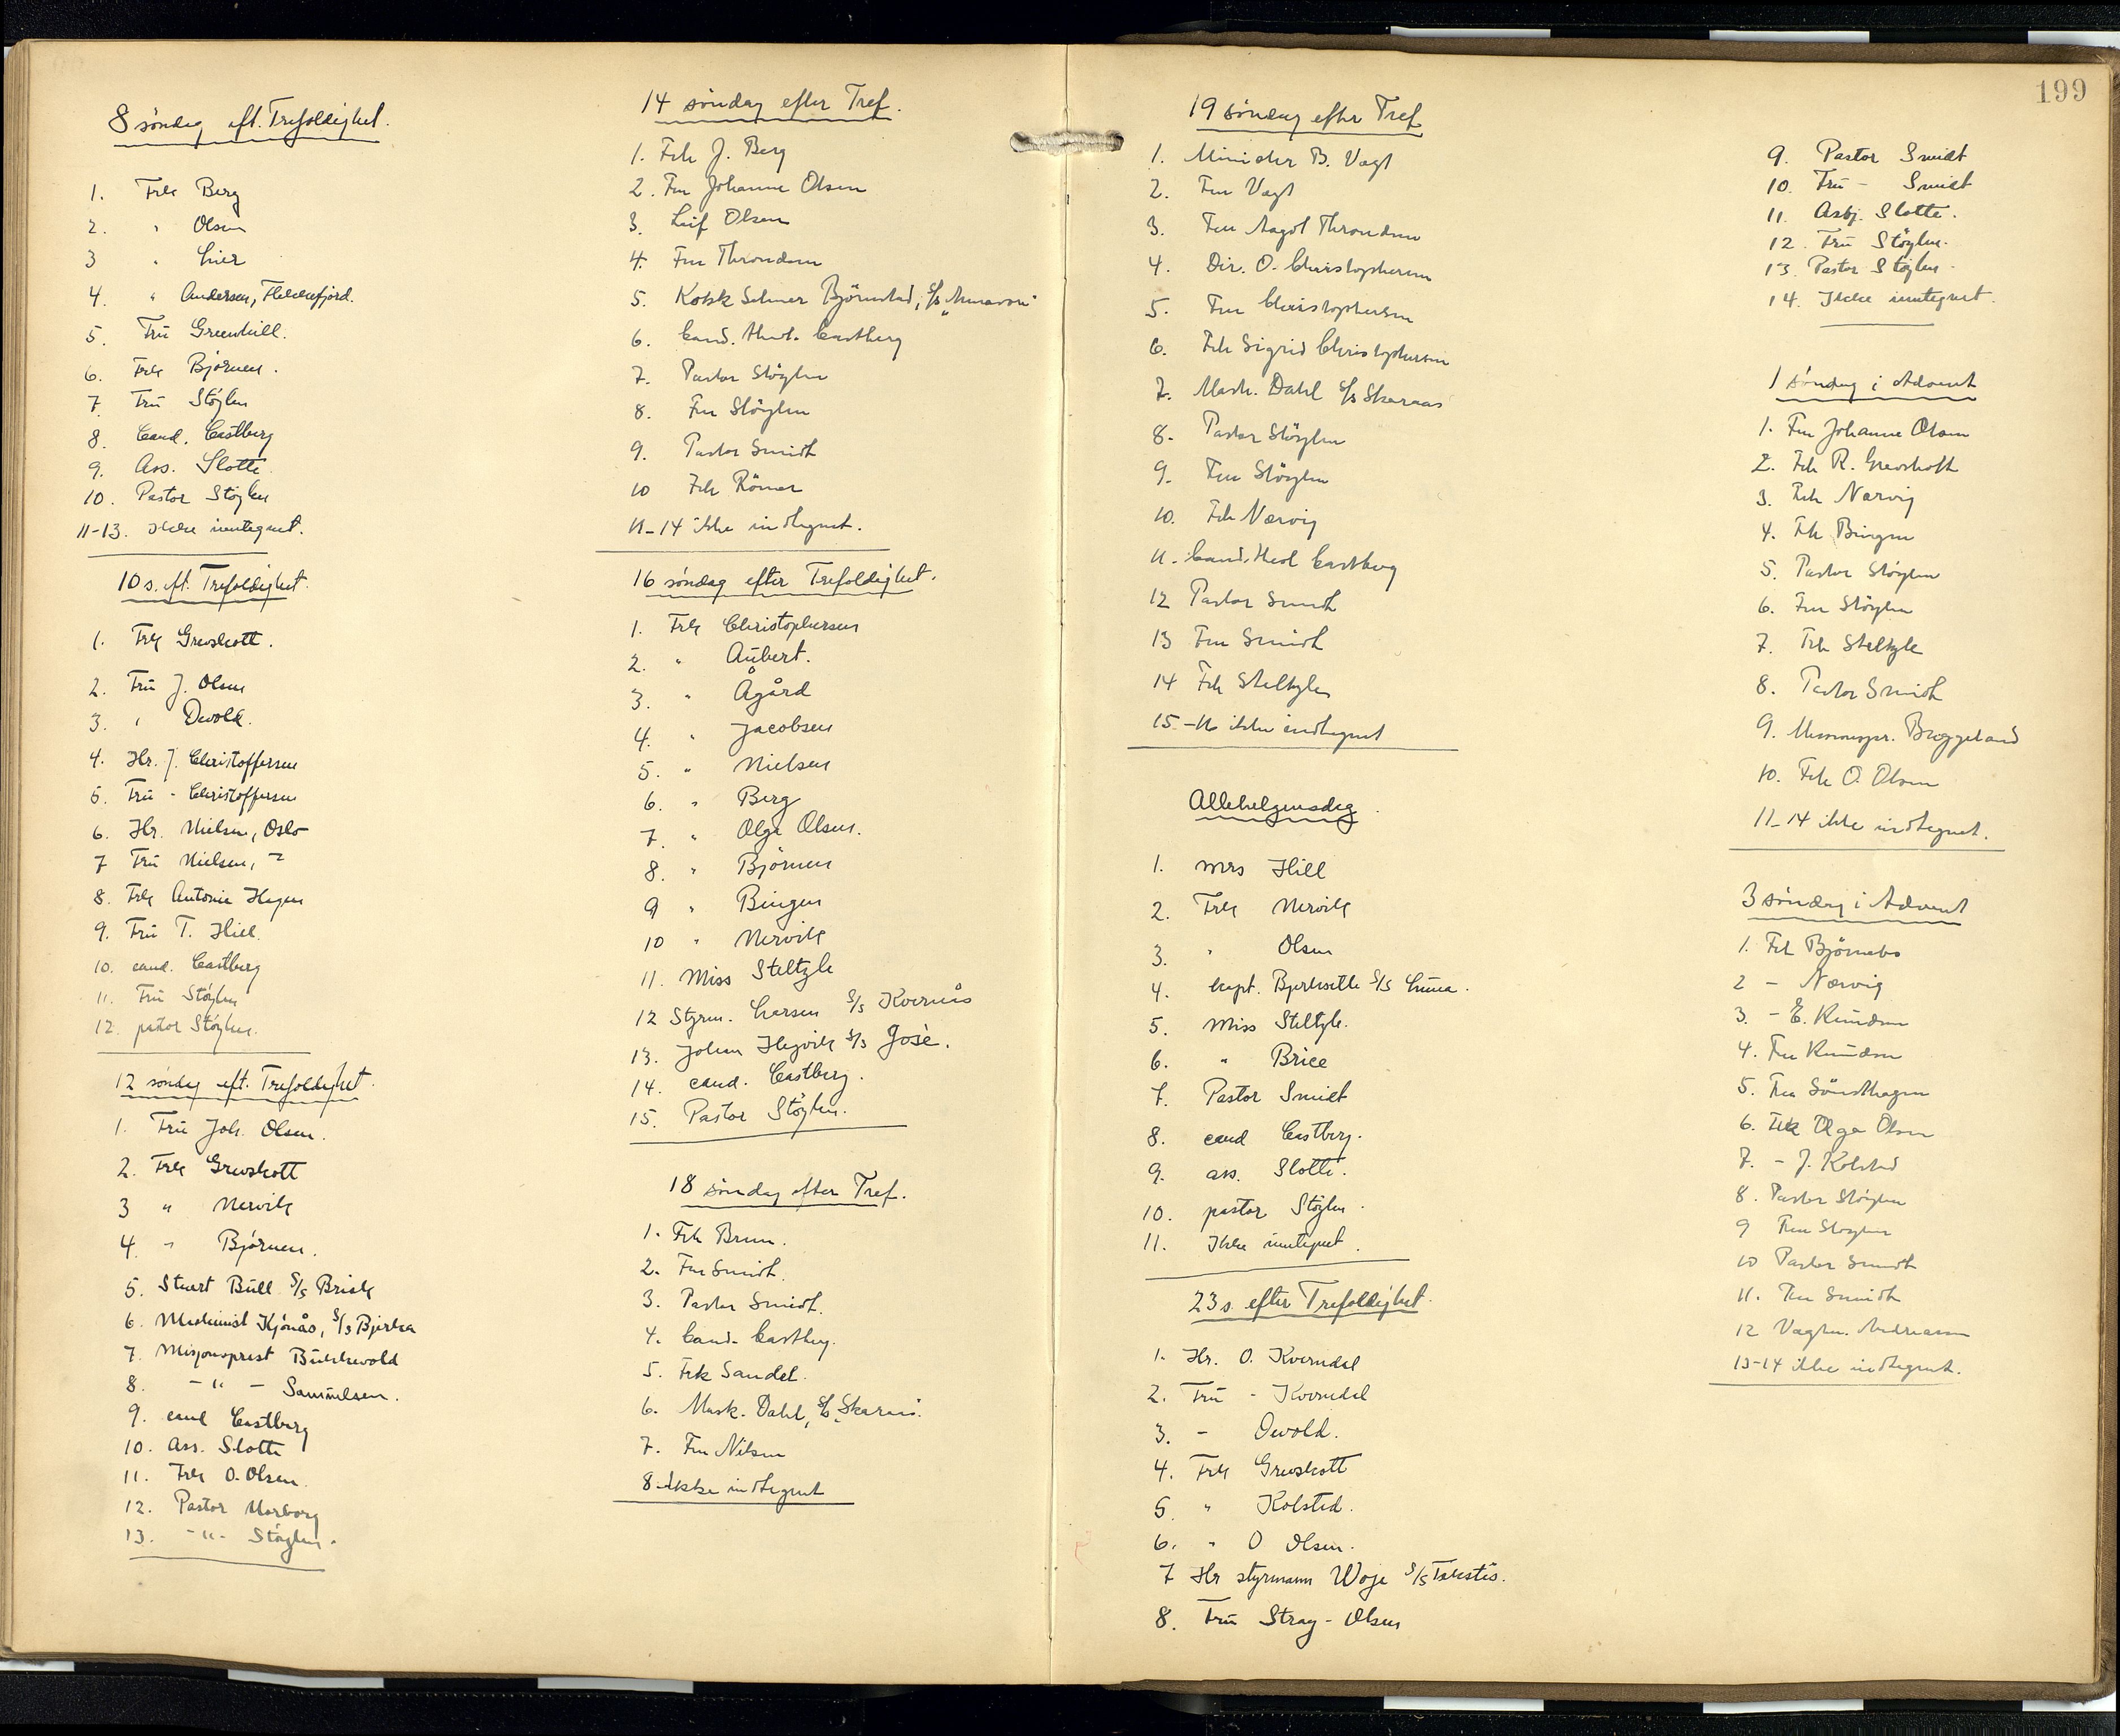 8 søndag eft. Trefoldighet.
1. Frk Berg
2. " Olsen
3 " Lier
4. " Andersen, Flekkefjord.
5. Frü Greenhill.
6. Frk Bjørnen.
7. Frü Støylen
8. Cand. Castberg
9. Ass. Slotte
10. Pastor Støylen
11-13. Ikke inntegnet.
10 s. eft. Trefoldighet.
1. Frk Grevskott.
2. Frü J. Olsen
3. " Owold.
4. Hr. J. Christoffersen
5. Frü - Christoffersen
6. Hr. Nielsen, Oslo
7 Frü Nielsen, "
8. Frk Antonie Hagen
9. Frü T. Hill.
10. cand. Castberg
11. Frü Støylen
12. pastor Støylen.
12 søndag eft. Trefoldighet.
1. Frü Joh. Olsen.
2. Frk Grevskott
3 " Nervik
4. " Bjørnen.
5. Stuert Büll S/S Brisk
6. Maskinist Kjønås, S/S Bjerka
7. Misjonsprest
8. - " - Samüelsen.
9. cand Castberg
10. Ass. Slotte
11. Frk O. Olsen.
12. Pastor Marborg
13. - " - Støylen.
14 søndag efter Tref.
1. Frk J. Berg
2. Fru Johanne Olsen
3. Leif Olsen
4. Fru Throndsen
5. Kokk Selmer Bjørnstad, S/S
6. Cand. theol. Castberg
7. Pastor Støylen
8. Fru Støylen
9. Pastor Smidt
10 Frk Römer
11-14 ikke indtegnet.
16 søndag efter Trefoldighet.
1. Frk Christophersen
2. " Aübert.
3. " Ågård
4. " Jacobsen
5. " Nielsen
6. " Berg
7. " Olga Olsen.
8. " Bjørnen
9 " Bingen
10 " Nervik
11. Miss Steltzle
12 Styrm. Larsen S/S Kvernås
13. Johan Hegvik S/S José.
14. cand. Castberg.
15. Pastor Støylen.
18 søndag efter Tref.
1. Frk Brun.
2. Fru Smidt.
3. Pastor Smidt.
4. Cand. Castberg.
5. Frk Sandel.
6. Mask. Dahl, S/S Skaraas.
7. Fru Nilsen
8. Ikke indtegnet
199
19 søndag efter Tref
1. Minister B. Vogt
2. Fru Vogt
3. Fru Aagot Throndsen
4. Dir. O. Christophersen
5. Fru Christophersen
6. Frk Sigrid Christophersen
7. Mask. Dahl S/S Skaraas
8. Pastor Støylen
9. Fru Støylen
10. Frk Nærvig
11. Cand. theol Castberg
12 Pastor Smidt
13 Fru Smidt
14 Frk Steltzle
15-16 ikke indtegnet
Allehelgensdag.
1. Mrs Hill
2. Frk Nervik
3. " Olsen
4. Kapt. Bjerksetle S/S Cuna.
5. Miss Steltzle.
6. " Brice
7. Pastor Smidt
8. cand Castberg.
9. ass. Slotte.
10. pastor Støylen.
11. Ikke inntegnet.
23 s. efter Trefoldighet.
1. Hr. O. Kverndal
2. Frü - Kverndal
3. - Owold.
4. Frk Grevskott
5. " Kolstad.
6. " O Olsen.
7 Hr styrmann Woje S/S
8. Frü Stray-Olsen
9. Pastor Smidt
10. Frü - Smidt
11. Asbj. Slotte.
12. Frü Støylen.
13. Pastor Støylen.
14. Ikke inntegnet.
1 søndag i Advent
1. Fru Johanne Olsen
2. Frk R. Grevskott
3. Frk Nærvig
4. Frk Bingen
5. Pastor Støylen
6. Fru Støylen
7. Frk Steltzle
8. Pastor Smidt
9. Missionspr. Bryggeland
10. Frk O. Olsen
11-14 ikke indtegnet.
3 søndag i Advent
1. Frk Bjørnebo
2 - Nærvig
3. - E. Knudsen
4. Fru Knudsen
5. Fru Söndthagen
6. Frk Olga Olsen
7. - J. Kolstad
8. Pastor Støylen
9 Fru Støylen
10 Pastor Smidt
11. Fru Smidt
12 Vagtm. Andreassen
13-14 ikke indtegnet.